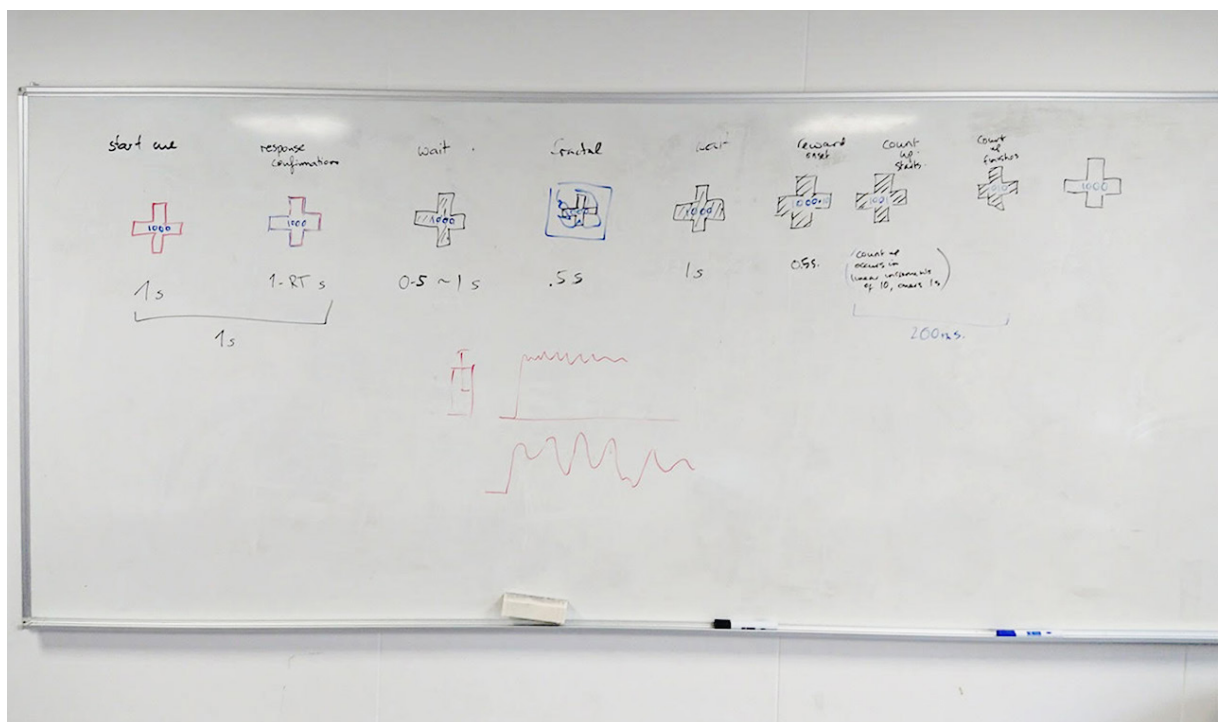 start cue
response
confirmation
wait
fractal
wait
reward
onset
count
up
starts
count
up
finishes
1000
1000
1000
1000
1000
1001
1010
1000
1s
1-RT s
0.5 ~ 1 s
.5s
1s
0.5s.
(count up
occurs in
linear increments
of 10, over 1s)
1s
200ms.